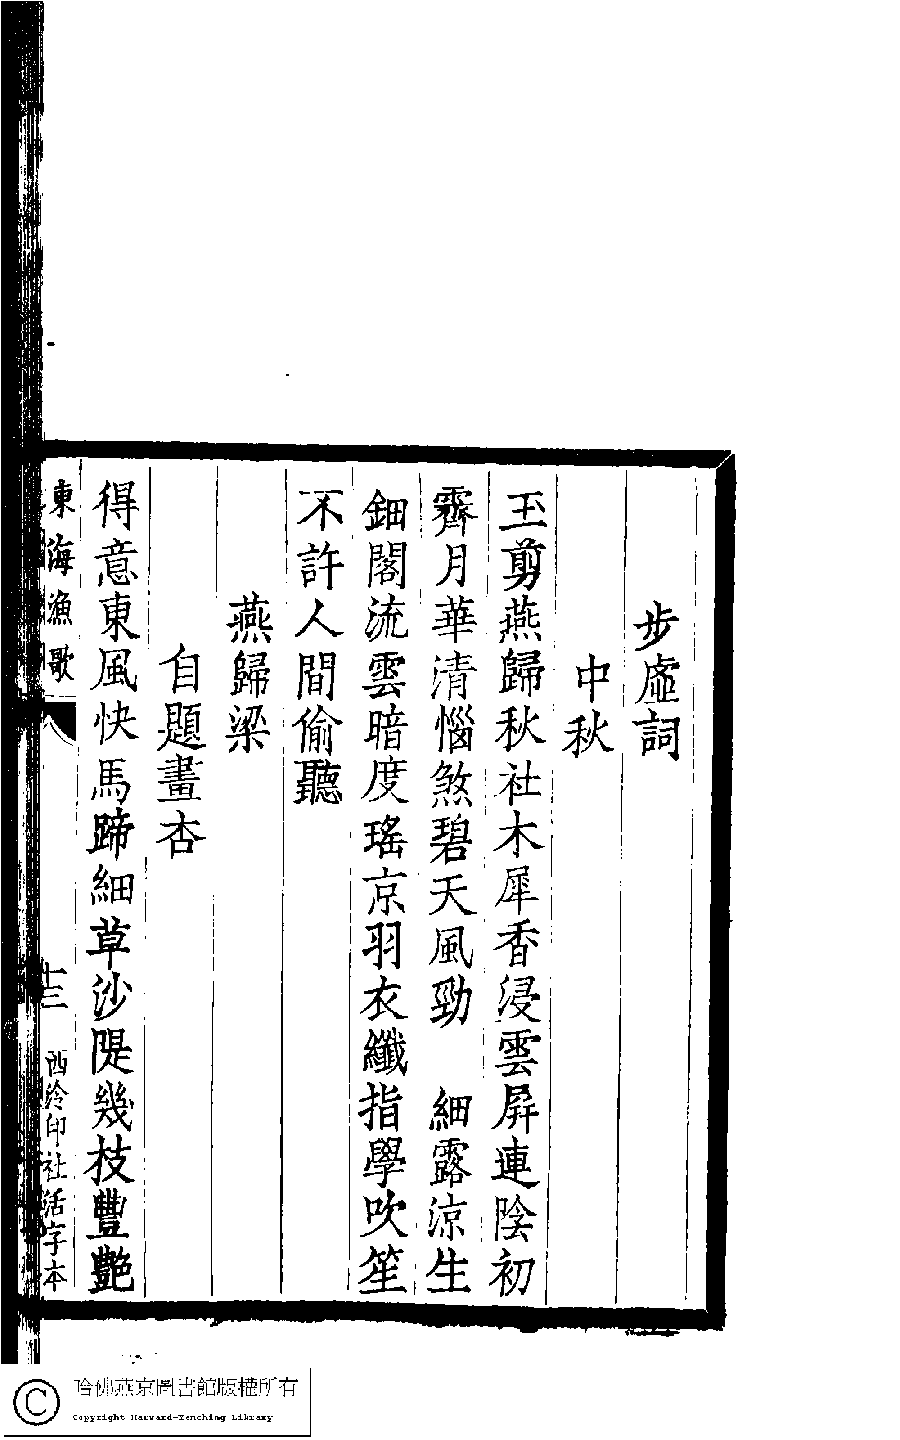 步虛詞
中秋
玉剪燕歸秋社木犀香浸雲屏連陰初
霽月華清惱煞碧天風勁　細露涼生
鈿閣流雲暗度瑤京羽衣纖指學吹笙
不許人間偷聽
燕歸梁
自題畫杏
得意東風快馬蹄細草沙隄幾枝豐艷
東海漁歌
十三
西泠印社活字本
哈佛燕京圖書館版權所有
Copyright Harvard-Yenching Library